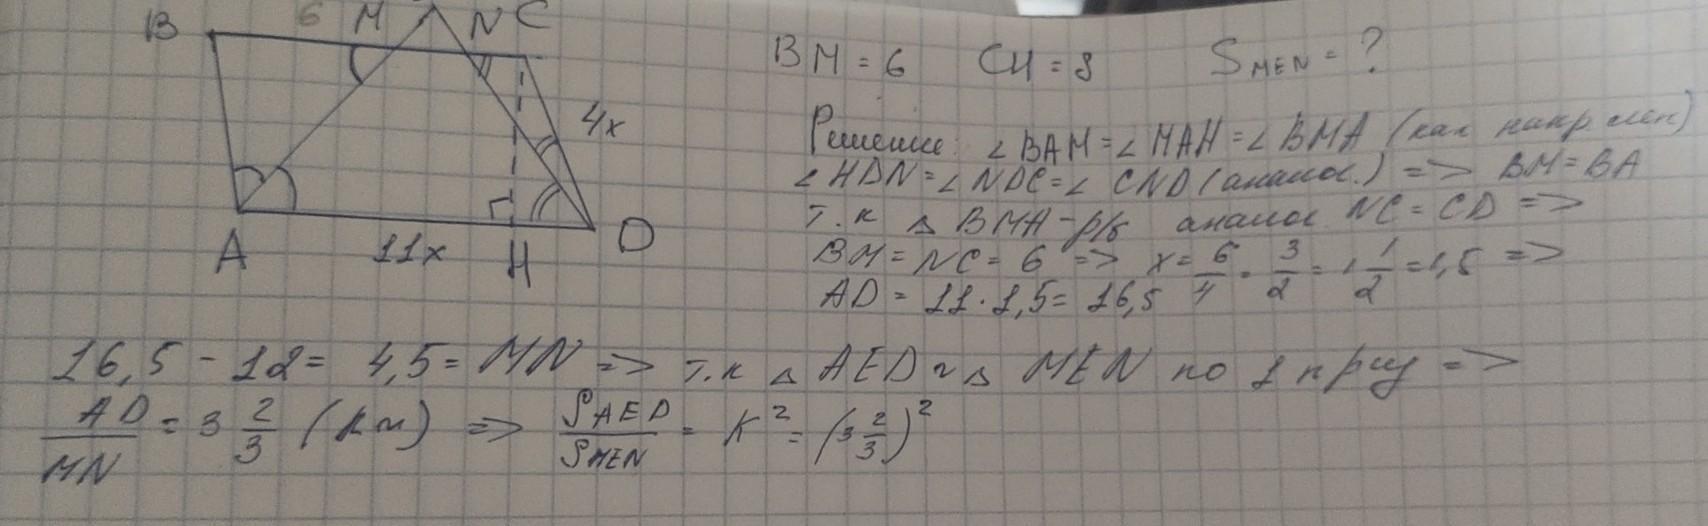 B 6 M N C
4x
A 11x H D
BM = 6 CH = 8 S MEN = ?
Решение: ∠BAM = ∠MAH = ∠BMA (как накр. леж)
∠HDN = ∠NDC = ∠CND (аналог.) => BM = BA
т.к △ BMA - р/б аналог NC = CD =>
BM = NC = 6 => x = 6/4 = 3/2 = 1 1/2 = 1,5 =>
AD = 11 · 1,5 = 16,5
16,5 - 12 = 4,5 = MN => т.к △ AED ~ △ MEN по 1 пр =>
AD/MN = 3 2/3 () => S AED / S MEN = K² = (3 2/3)²